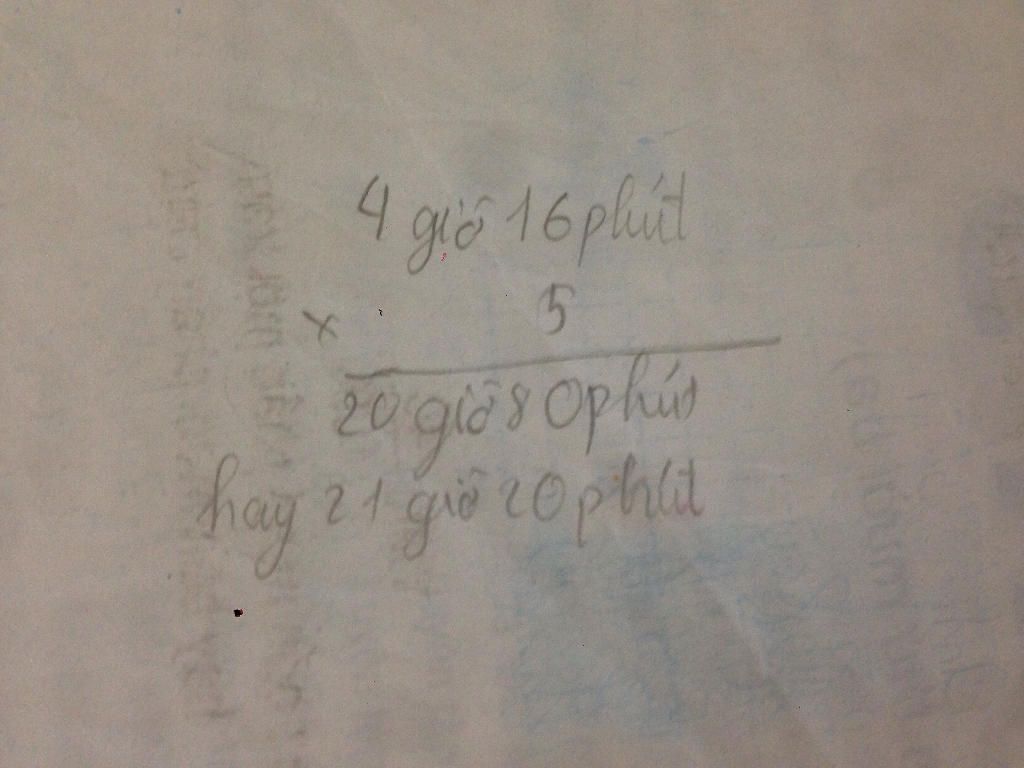 4 giờ 16 phút
× 5
20 giờ 80 phút
hay 21 giờ 20 phút